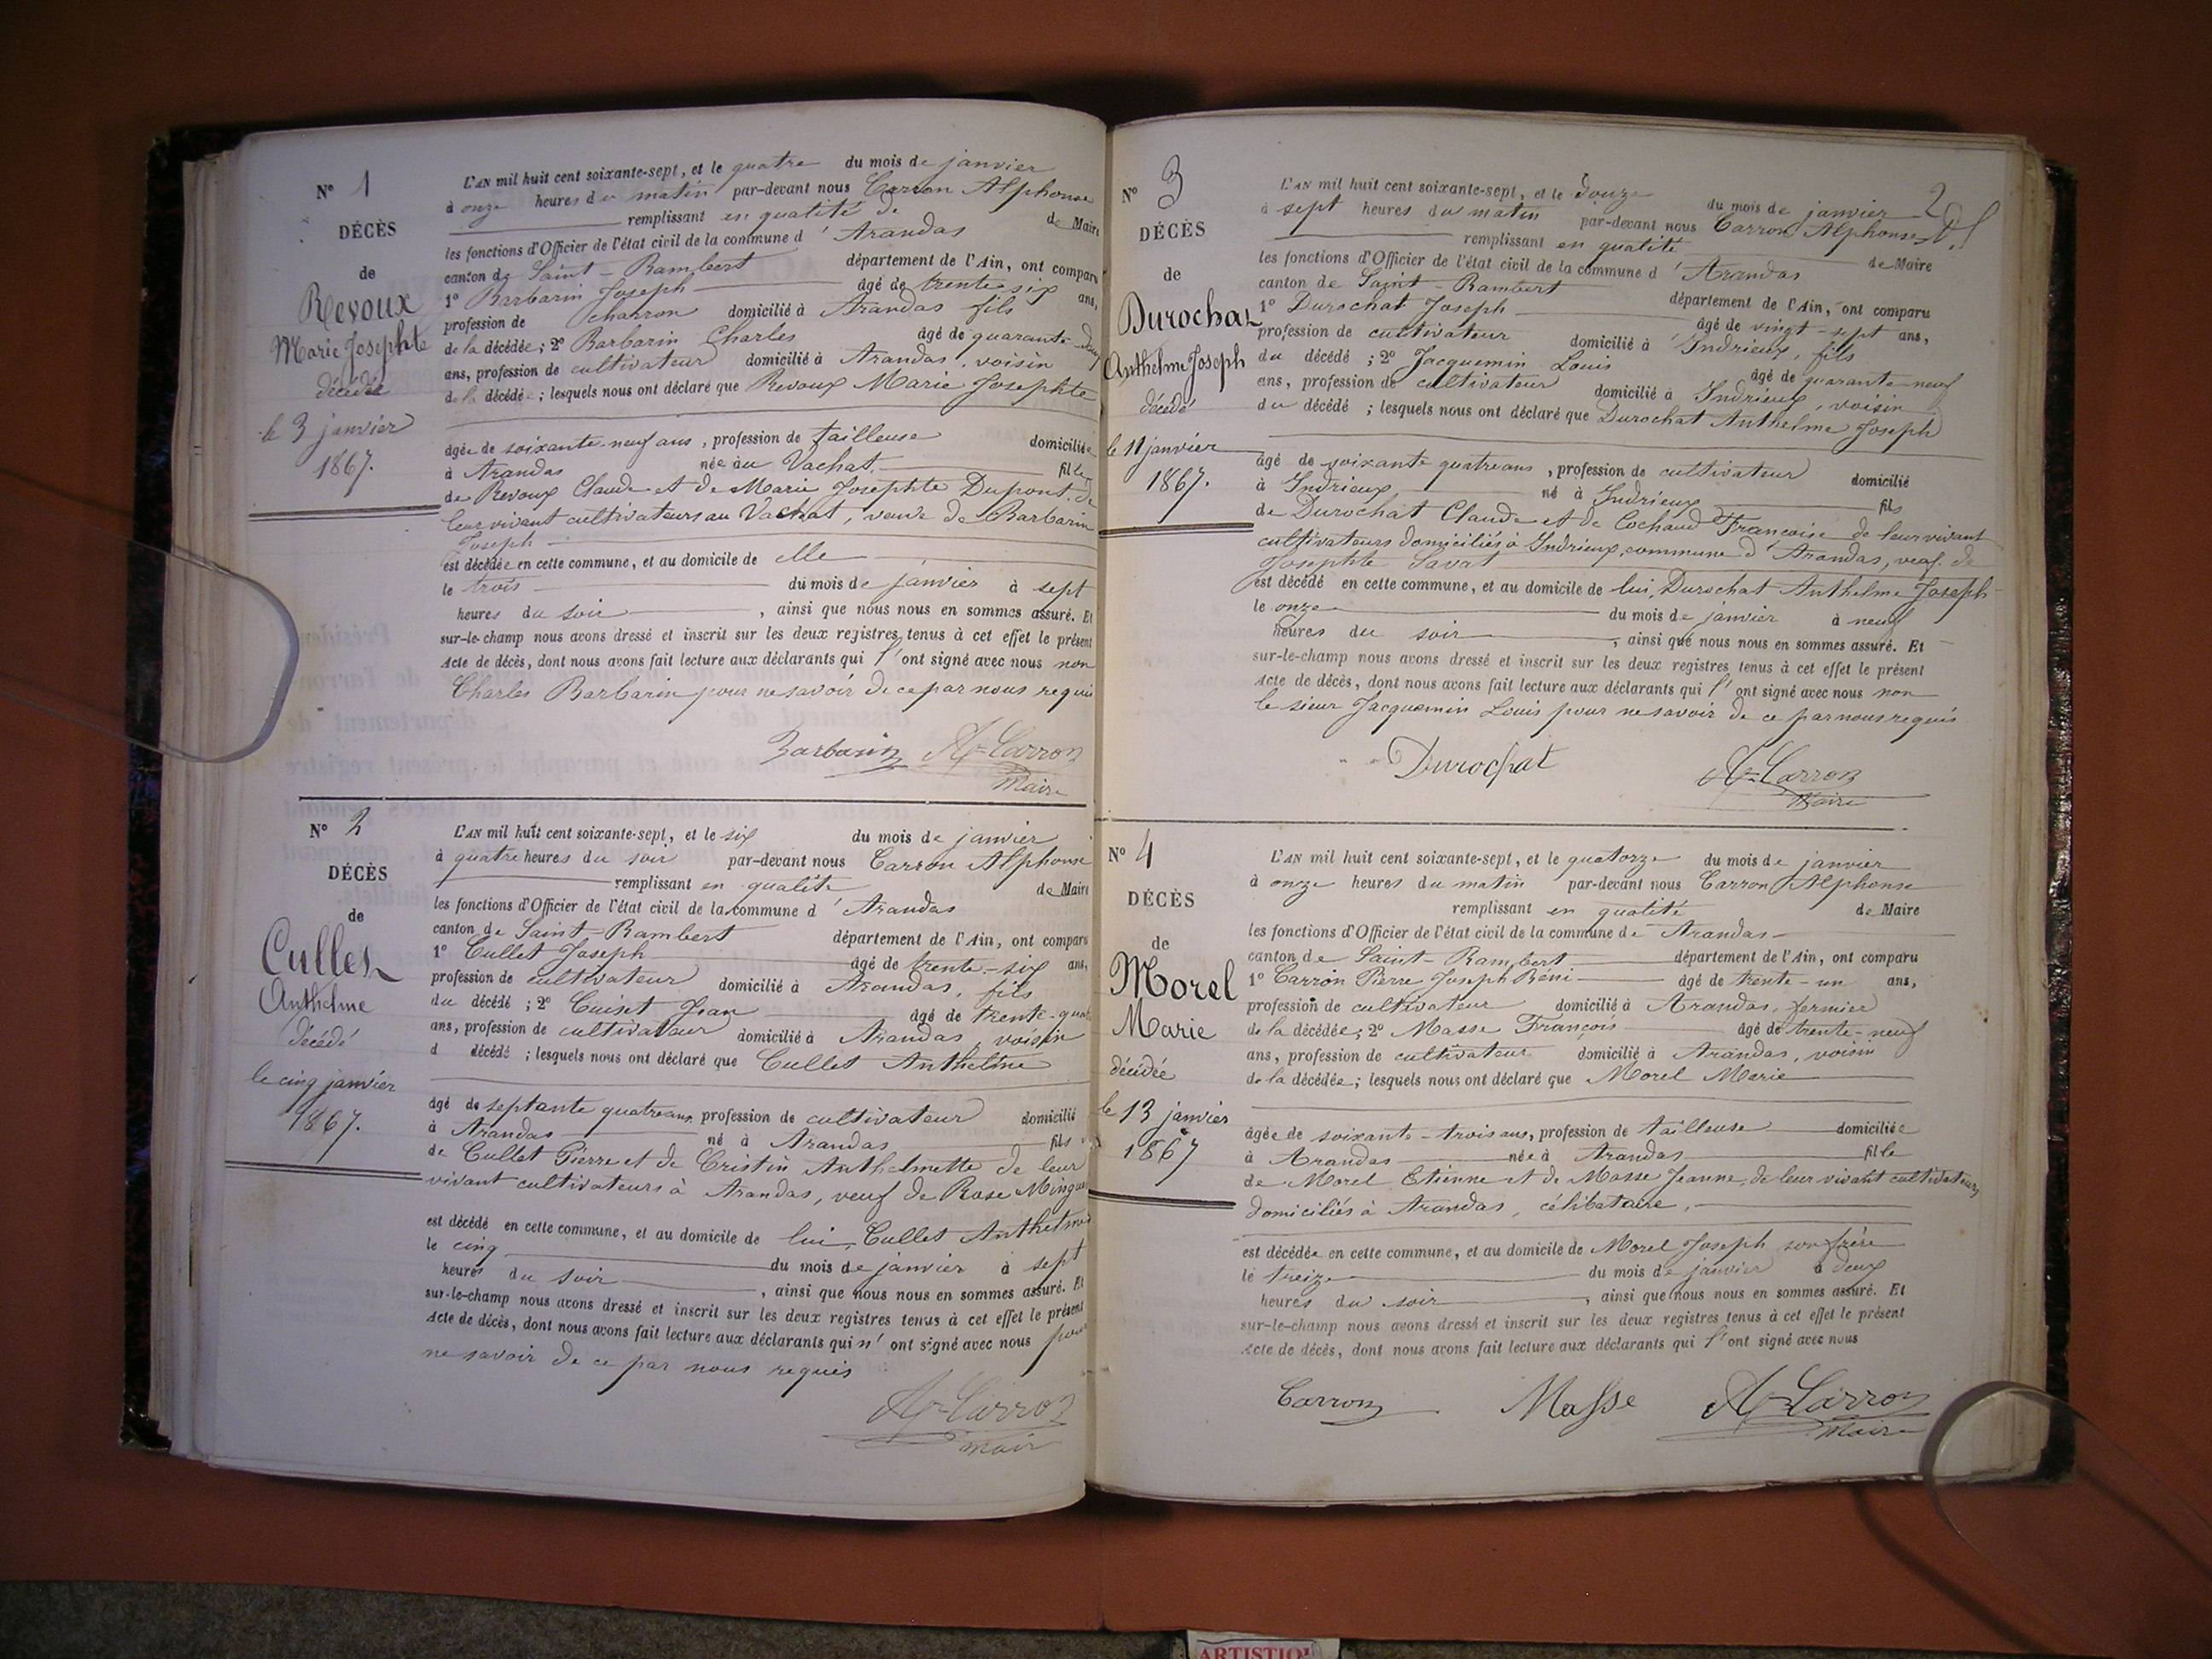 N° 1
DÉCÈS
de
Revoux
Marie Josephte
décédée
le 3 janvier
1867.
L'AN mil huit cent soixante-sept, et le quatre du mois de janvier
à onze heures du matin par-devant nous Carron Alphonse
remplissant en qualité de de Maire
les fonctions d'Officier de l'état civil de la commune d'Arandas
canton de Saint-Rambert département de l'Ain, ont comparu
1° Barbarin Joseph âgé de trente six ans,
profession de charron domicilié à Arandas fils
de la décédée; 2° Barbarin Charles âgé de quarante-deux
ans, profession de cultivateur domicilié à Arandas, voisin
de la décédée; lesquels nous ont déclaré que Revoux Marie Josephte
âgée de soixante-neuf ans, profession de tailleuse domiciliée
à Arandas née au Vachat, fille
de Revoux Claude et de Marie Josephte Dupont, de
leur vivant cultivateurs au Vachat, veuve de Barbarin
Joseph
est décédée en cette commune, et au domicile de elle
le trois du mois de janvier à sept
heures du soir, ainsi que nous nous en sommes assuré. Et
sur-le-champ nous avons dressé et inscrit sur les deux registres tenus à cet effet le présent
Acte de décès, dont nous avons fait lecture aux déclarants qui l'ont signé avec nous non
Charles Barbarin pour ne savoir de ce par nous requis
Barbarin A-Carron
Maire
N° 2
DÉCÈS
de
Cullet
Anthelme
décédé
le cinq janvier
1867.
L'AN mil huit cent soixante-sept, et le six du mois de janvier
à quatre heures du soir par-devant nous Carron Alphonse
remplissant en qualité de Maire
les fonctions d'Officier de l'état civil de la commune d'Arandas
canton de Saint-Rambert département de l'Ain, ont comparu
1° Cullet Joseph âgé de trente-six ans,
profession de cultivateur domicilié à Arandas, fils
du décédé; 2° Cuiset Jean âgé de trente-quat
ans, profession de cultivateur domicilié à Arandas, voisin
d décédé; lesquels nous ont déclaré que Cullet Anthelme
âgé de septante quatre ans, profession de cultivateur domicilié
à Arandas né à Arandas fils
de Cullet Pierre et de Cristin Anthelmette de leur
vivant cultivateurs à Arandas, veuf de Rose Mingue
est décédé en cette commune, et au domicile de lui, Cullet Anthelme
le cinq du mois de janvier à sept
heures du soir, ainsi que nous nous en sommes assuré. Et
sur-le-champ nous avons dressé et inscrit sur les deux registres tenus à cet effet le présent
Acte de décès, dont nous avons fait lecture aux déclarants qui n'ont signé avec nous pour
ne savoir de ce par nous requis
A-Carron
Maire
2
N° 3
DÉCÈS
de
Durochat
Anthelme Joseph
décédé
le 11 janvier
1867.
L'AN mil huit cent soixante-sept, et le douze du mois de janvier
à sept heures du matin par-devant nous Carron Alphonse
remplissant en qualité de Maire
les fonctions d'Officier de l'état civil de la commune d'Arandas
canton de Saint-Rambert département de l'Ain, ont comparu
1° Durochat Joseph âgé de vingt-sept ans,
profession de cultivateur domicilié à Indrieux, fils
du décédé; 2° Jacquemin Louis âgé de quarante-neuf
ans, profession de cultivateur domicilié à Indrieux, voisin
du décédé; lesquels nous ont déclaré que Durochat Anthelme Joseph
âgé de soixante quatre ans, profession de cultivateur domicilié
à Indrieux né à Indrieux fils
de Durochat Claude et de Cochaud Françoise de leur vivant
cultivateurs domiciliés à Indrieux, commune d'Arandas, veuf de
Josephte Savat
est décédé en cette commune, et au domicile de lui, Durochat Anthelme Joseph
le onze du mois de janvier à neuf
heures du soir, ainsi que nous nous en sommes assuré. Et
sur-le-champ nous avons dressé et inscrit sur les deux registres tenus à cet effet le présent
Acte de décès, dont nous avons fait lecture aux déclarants qui l'ont signé avec nous non
le sieur Jacquemin Louis pour ne savoir de ce par nous requis
Durochat A-Carron
Maire
N° 4
DÉCÈS
de
Morel
Marie
décédée
le 13 janvier
1867
L'AN mil huit cent soixante-sept, et le quatorze du mois de janvier
à onze heures du matin par-devant nous Carron Alphonse
remplissant en qualité de Maire
les fonctions d'Officier de l'état civil de la commune de Arandas
canton de Saint-Rambert département de l'Ain, ont comparu
1° Carron Pierre Joseph Réni âgé de trente-un ans,
profession de cultivateur domicilié à Arandas, fermier
de la décédée; 2° Masse François âgé de trente-neuf
ans, profession de cultivateur domicilié à Arandas, voisin
de la décédée; lesquels nous ont déclaré que Morel Marie
âgée de soixante-trois ans, profession de tailleuse domiciliée
à Arandas née à Arandas fille
de Morel Etienne et de Masse Jeanne, de leur vivant cultivateurs
domiciliés à Arandas, célibataire,
est décédée en cette commune, et au domicile de Morel Joseph son frère
le treize du mois de janvier à deux
heures du soir, ainsi que nous nous en sommes assuré. Et
sur-le-champ nous avons dressé et inscrit sur les deux registres tenus à cet effet le présent
Acte de décès, dont nous avons fait lecture aux déclarants qui l'ont signé avec nous
Carron Masse A-Carron
Maire
ARTISTIQ